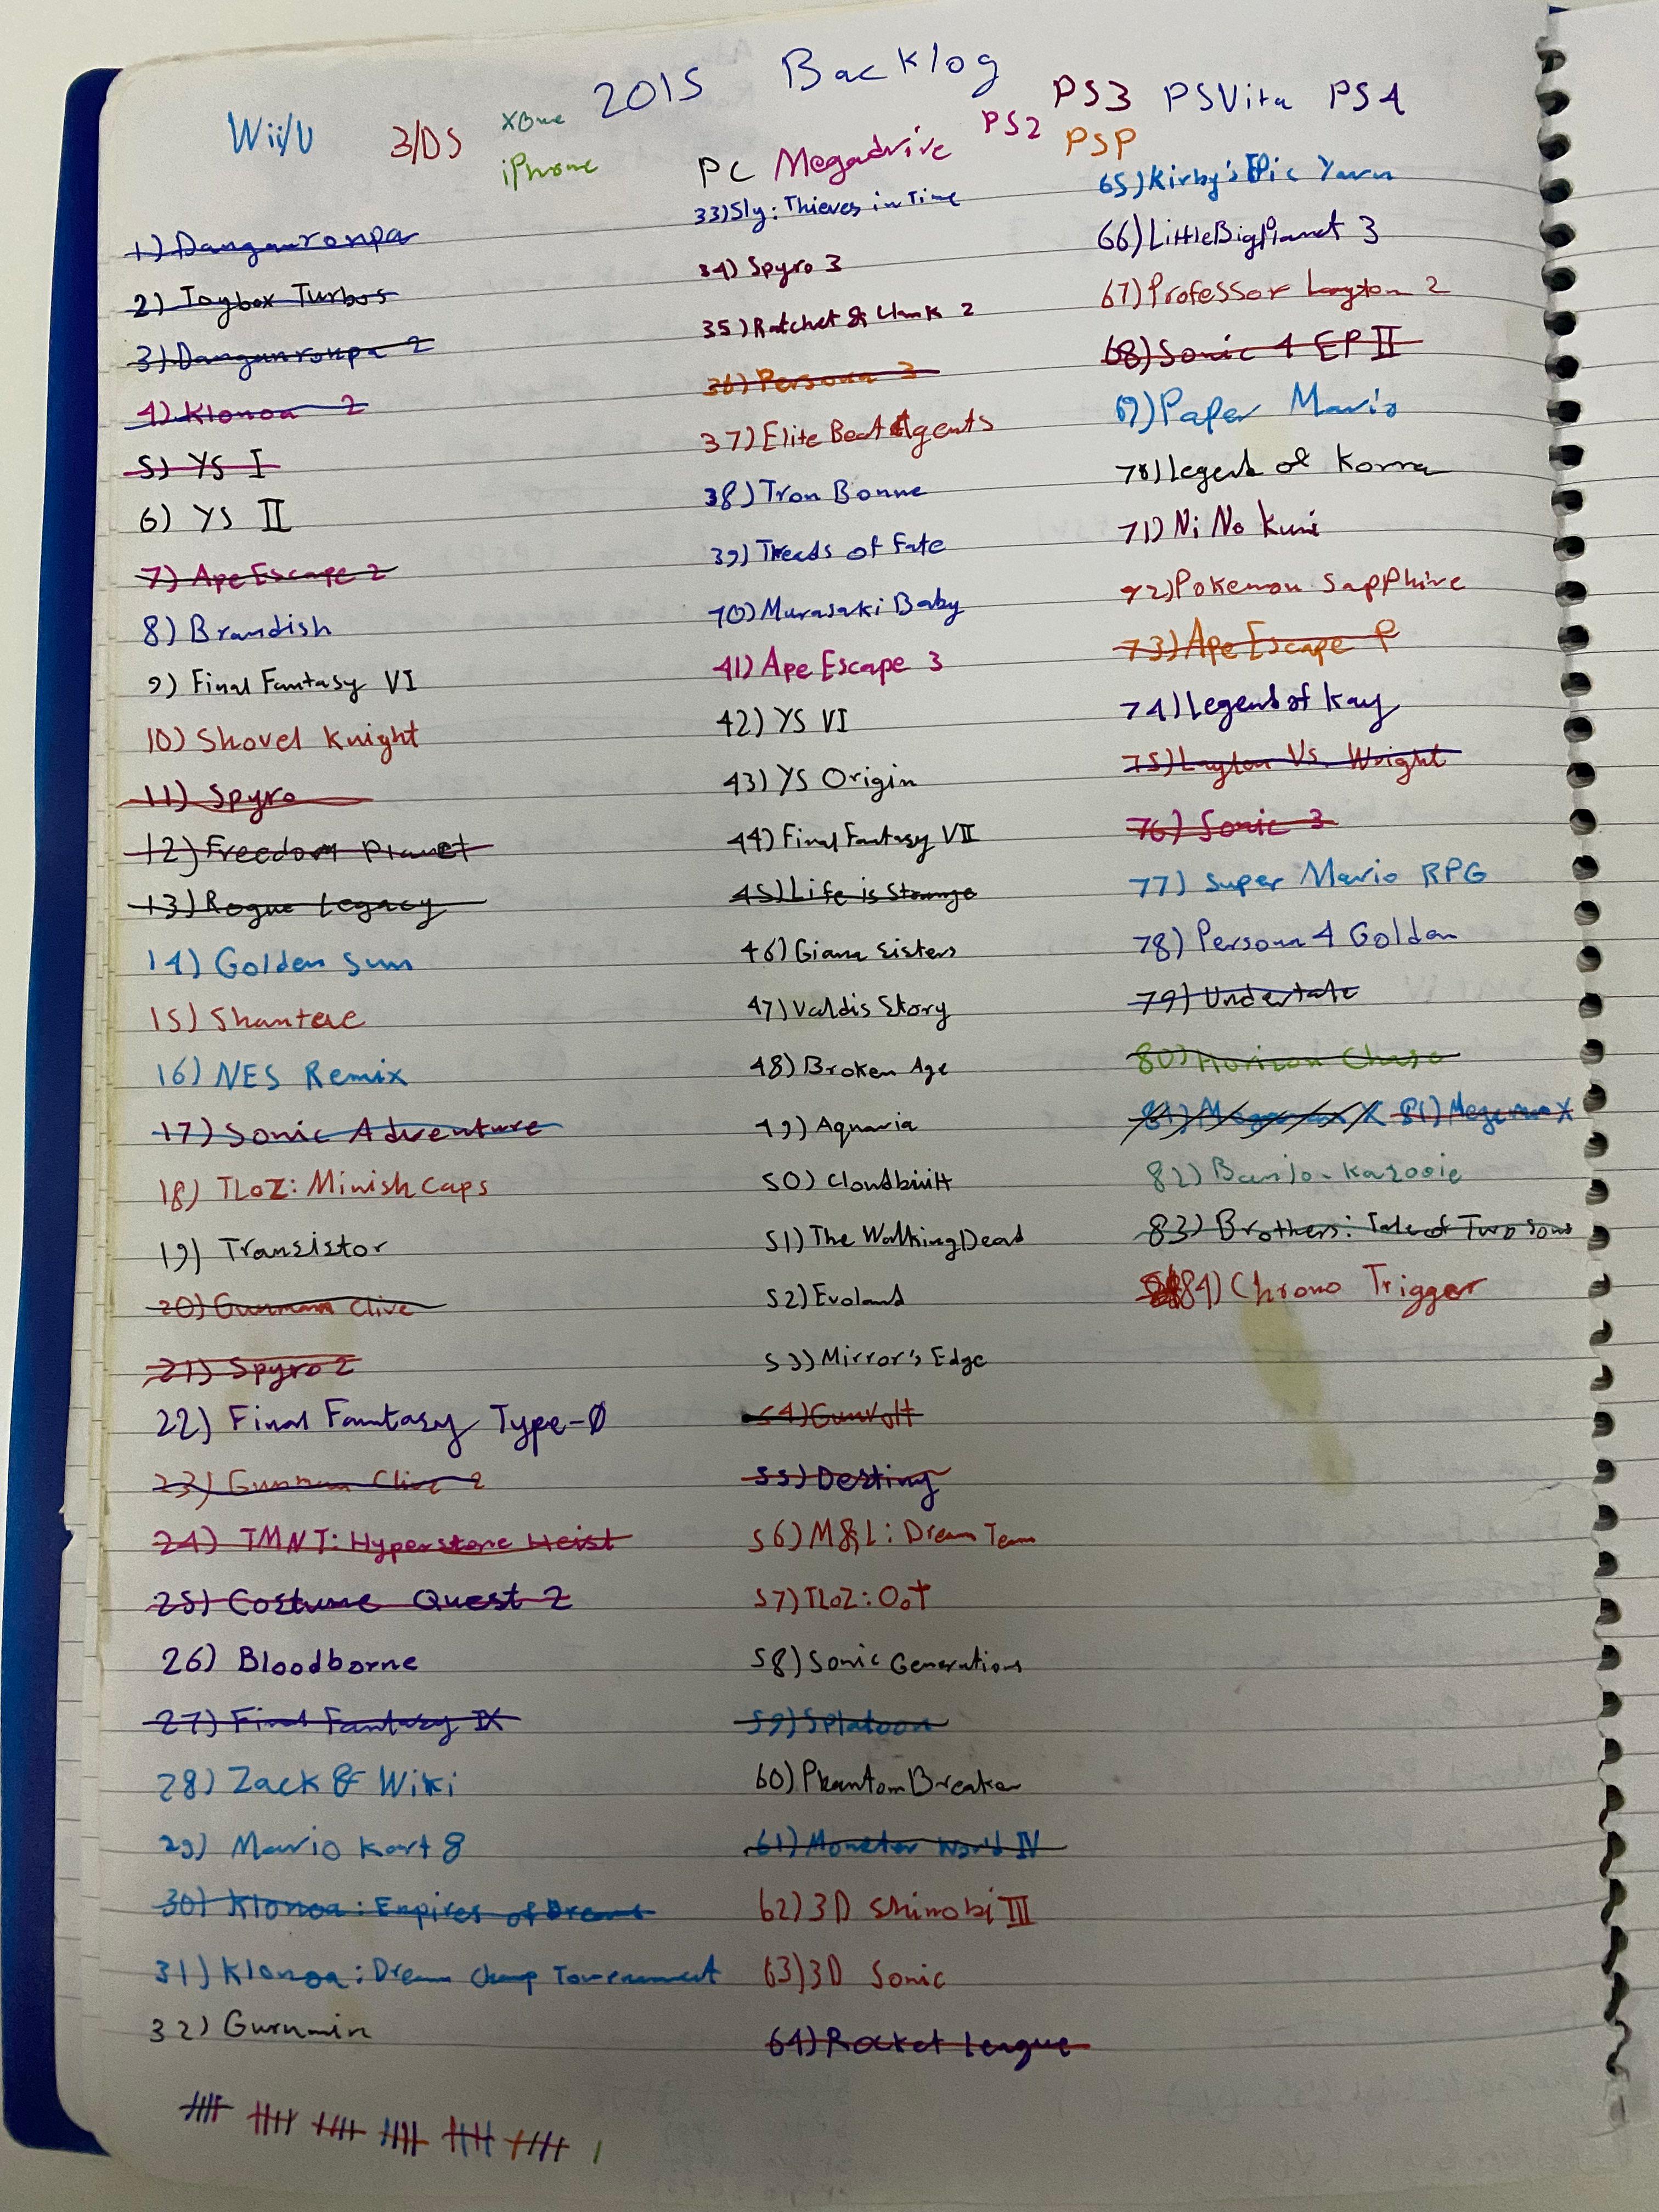 2015 Backlog
Wii/U 3/DS XOne iPhone PC Megadrive PS2 PS3 PSP PSVita PS4
1) Danganronpa
2) Toybox Turbos
3) Danganronpa 2
4) Klonoa 2
5) YS I
6) YS II
7) Ape Escape 2
8) Brandish
9) Final Fantasy VI
10) Shovel Knight
11) Spyro
12) Freedom Planet
13) Rogue Legacy
14) Golden Sun
15) Shantae
16) NES Remix
17) Sonic Adventure
18) TLoZ: Minish Caps
19) Transistor
20) Gunman Clive
21) Spyro 2
22) Final Fantasy Type-0
23) Gunman Clive 2
24) TMNT: Hyperstone Heist
25) Costume Quest 2
26) Bloodborne
27) Final Fantasy IX
28) Zack & Wiki
29) Mario Kart 8
30) Klonoa: Empires of Dreams
31) Klonoa: Dream Champ Tournament
32) Gurumin
33) Sly: Thieves in Time
34) Spyro 3
35) Ratchet & Clank 2
36) Persona 3
37) Elite Beat Agents
38) Tron Bonne
39) Treads of Fate
70) Murasaki Baby
41) Ape Escape 3
42) YS VI
43) YS Origin
44) Final Fantasy VII
45) Life is Strange
46) Giana Sisters
47) Valdis Story
48) Broken Age
49) Aquaria
50) Cloudbuilt
51) The Walking Dead
52) Evoland
53) Mirror's Edge
54) Gunvolt
55) Destiny
56) M&L: Dream Team
57) TLoZ: OoT
58) Sonic Generations
59) Splatoon
60) Phantom Breaker
61) Monster World IV
62) 3D Shinobi III
63) 3D Sonic
64) Rocket League
65) Kirby's Epic Yarn
66) LittleBigPlanet 3
67) Professor Layton 2
68) Sonic 4 EP II
69) Paper Mario
70) Legend of Korra
71) Ni No Kuni
72) Pokemon Sapphire
73) Ape Escape P
74) Legend of Kay
75) Layton Vs. Wright
76) Sonic 3
77) Super Mario RPG
78) Persona 4 Golden
79) Undertale
80) Horizon Chase
81) Megaman X 81) Megaman X
82) Banjo-Kazooie
83) Brothers: Tale of Two Sons
84) Chrono Trigger